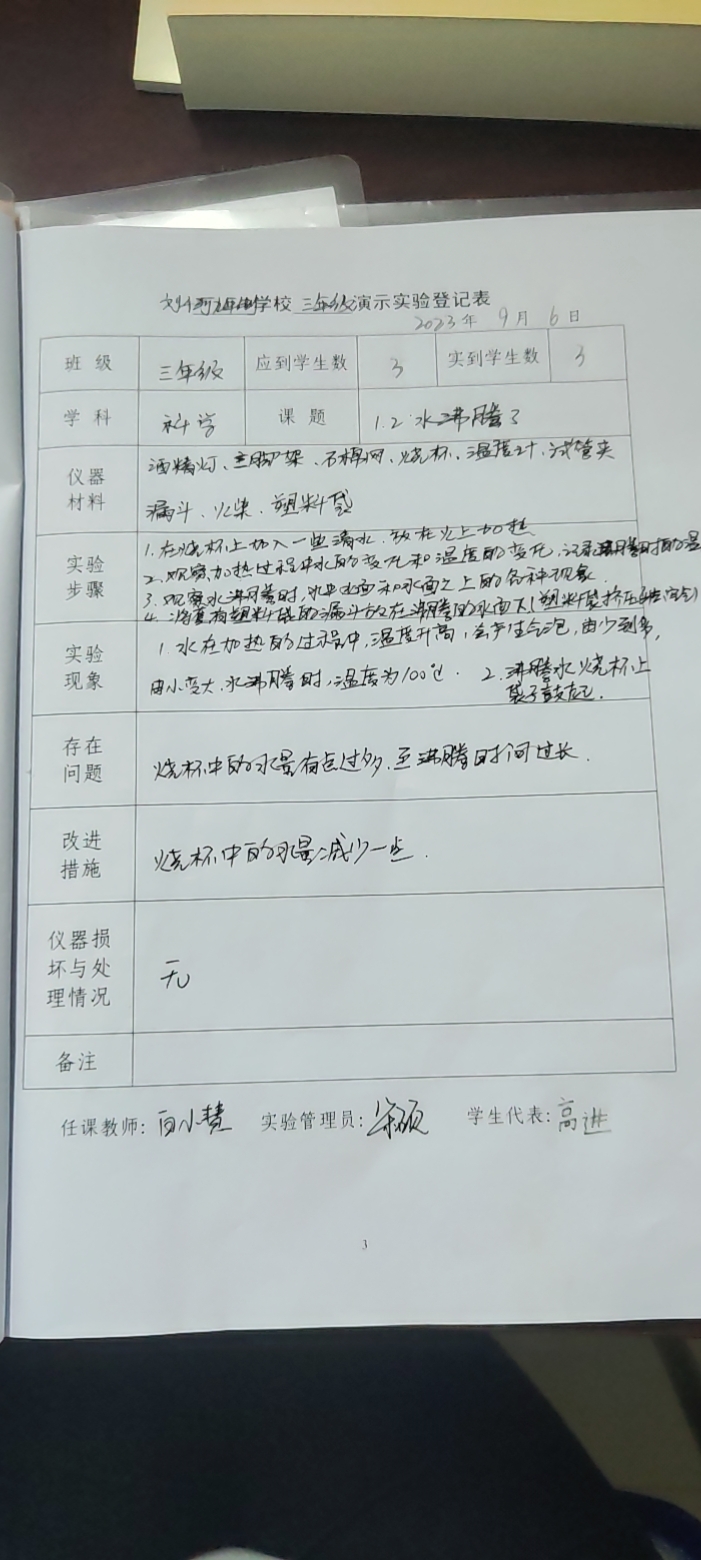 学校 三年级演示实验登记表
2023年 9月 6日
班 级 三年级 应到学生数 3 实到学生数 3
学 科 科学 课 题 1.2 水沸腾了
仪器材料 酒精灯、三脚架、石棉网、烧杯、温度计、试管夹
漏斗、火柴、塑料袋
实验步骤 1.在烧杯上加入一些清水,放在火上加热
2.观察加热过程中水的变化和温度的变化,记录沸腾时的温
3.观察水沸腾时,水中水面和水面之上的各种现象.
4.将 有塑料袋的漏斗放在沸腾的水面下(塑料袋挤压
实验现象 1.水在加热的过程中,温度升高,会产生气泡,由少到多,
由小变大.水沸腾时,温度为100℃. 2.沸腾水烧杯上
袋子鼓起.
存在问题 烧杯中的水量有点过多,至沸腾时间过长.
改进措施 烧杯中的水量减少一些.
仪器损坏与处理情况 无
备注
任课教师: 白小慧 实验管理员: 学生代表: 高进
3